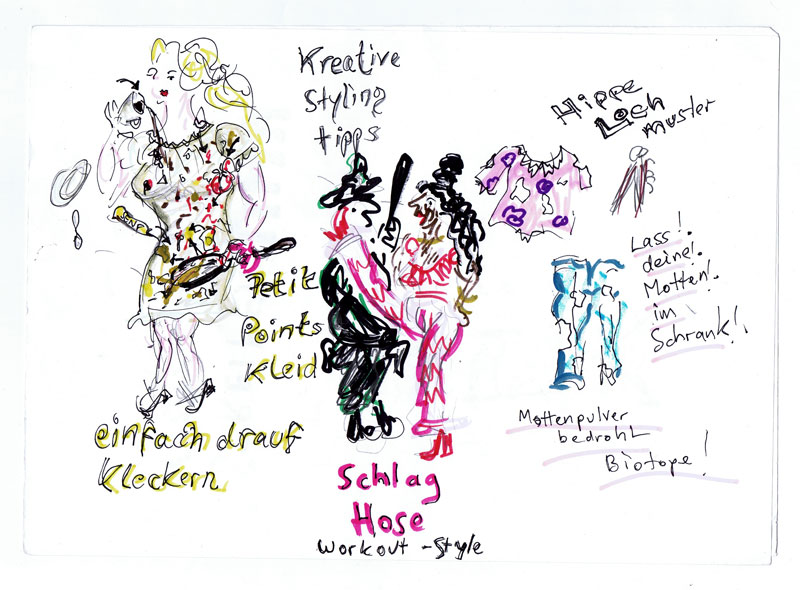 Kreative
Styling
tipps
SENF
Petit
Points
Kleid
einfach drauf
Kleckern
Schlag
Hose
Workout - Style
Hippe
Loch
muster
Lass!
deine!
Motten!
im
Schrank!
Mottenpulver
bedroht
Biotope!